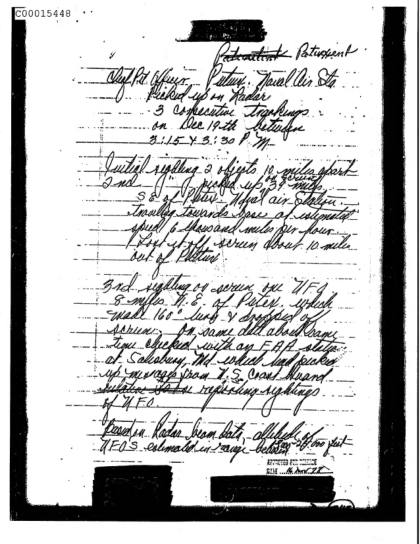 C00015448
Patuxent
Naval Air Sta.
Picked up on Radar
3 consecutive trackings
on Dec 19th between
3:15 & 3:30 P M
Initial sighting 2 objects 10 miles apart
2nd " picked up 39 miles
S E of Naval air Station
traveling towards base at estimated
speed 6 thousand miles per hour
Lost it off screen about 10 miles
out of
3rd sighting on screen one UFO
8 miles N.E. of which
made 160° turn & dropped off
screen. On same date about same
time checked with an FAA station
at Salisbury Md which had picked
up messages from U.S. Coast Guard
reporting sightings
of UFO.
Based on Radar beam data, altitude of
UFOS estimated in range between